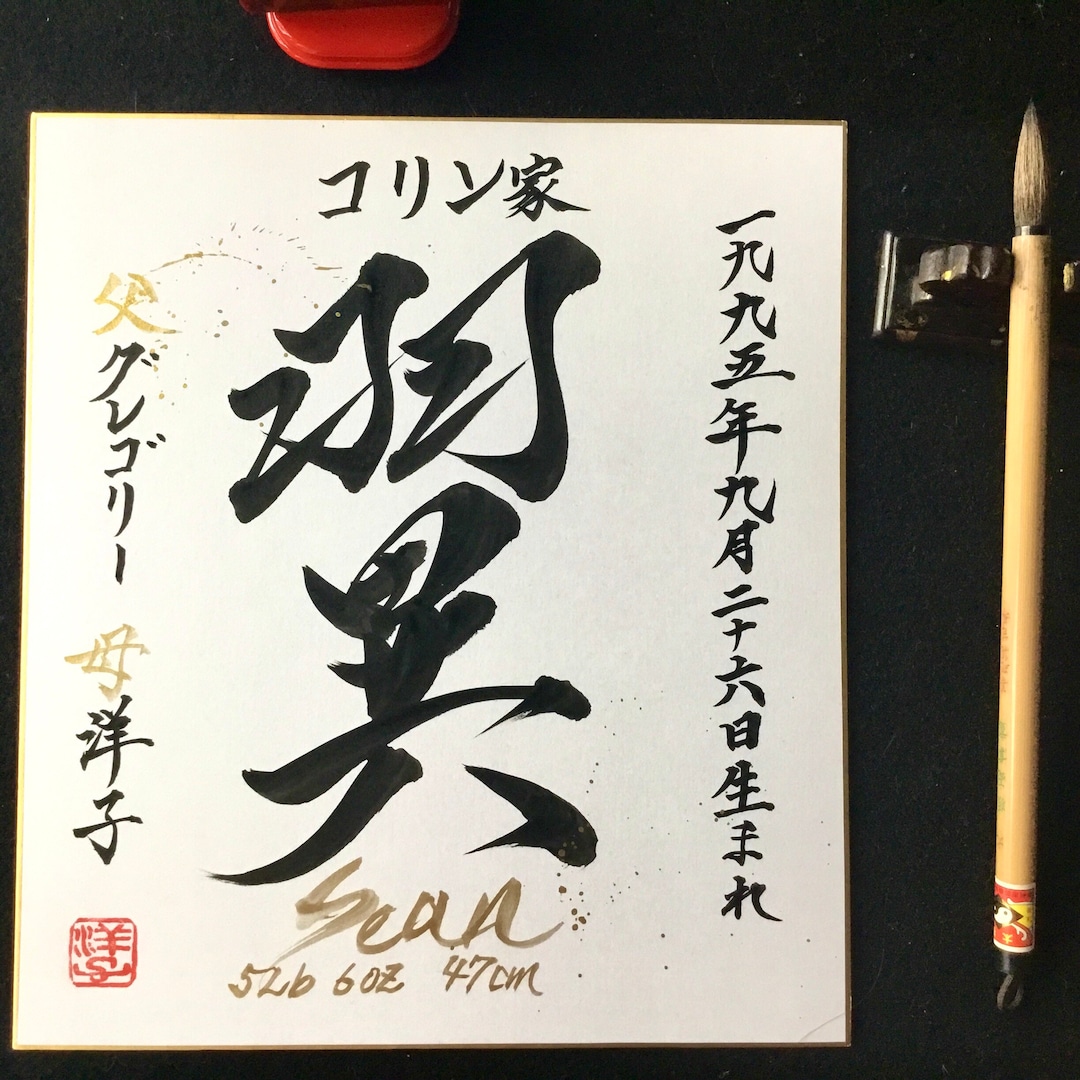 コリン家
一九九五年九月二十六日生まれ
翼
父グレゴリー 母洋子
Sean
5Lb 6oz 47cm
洋子